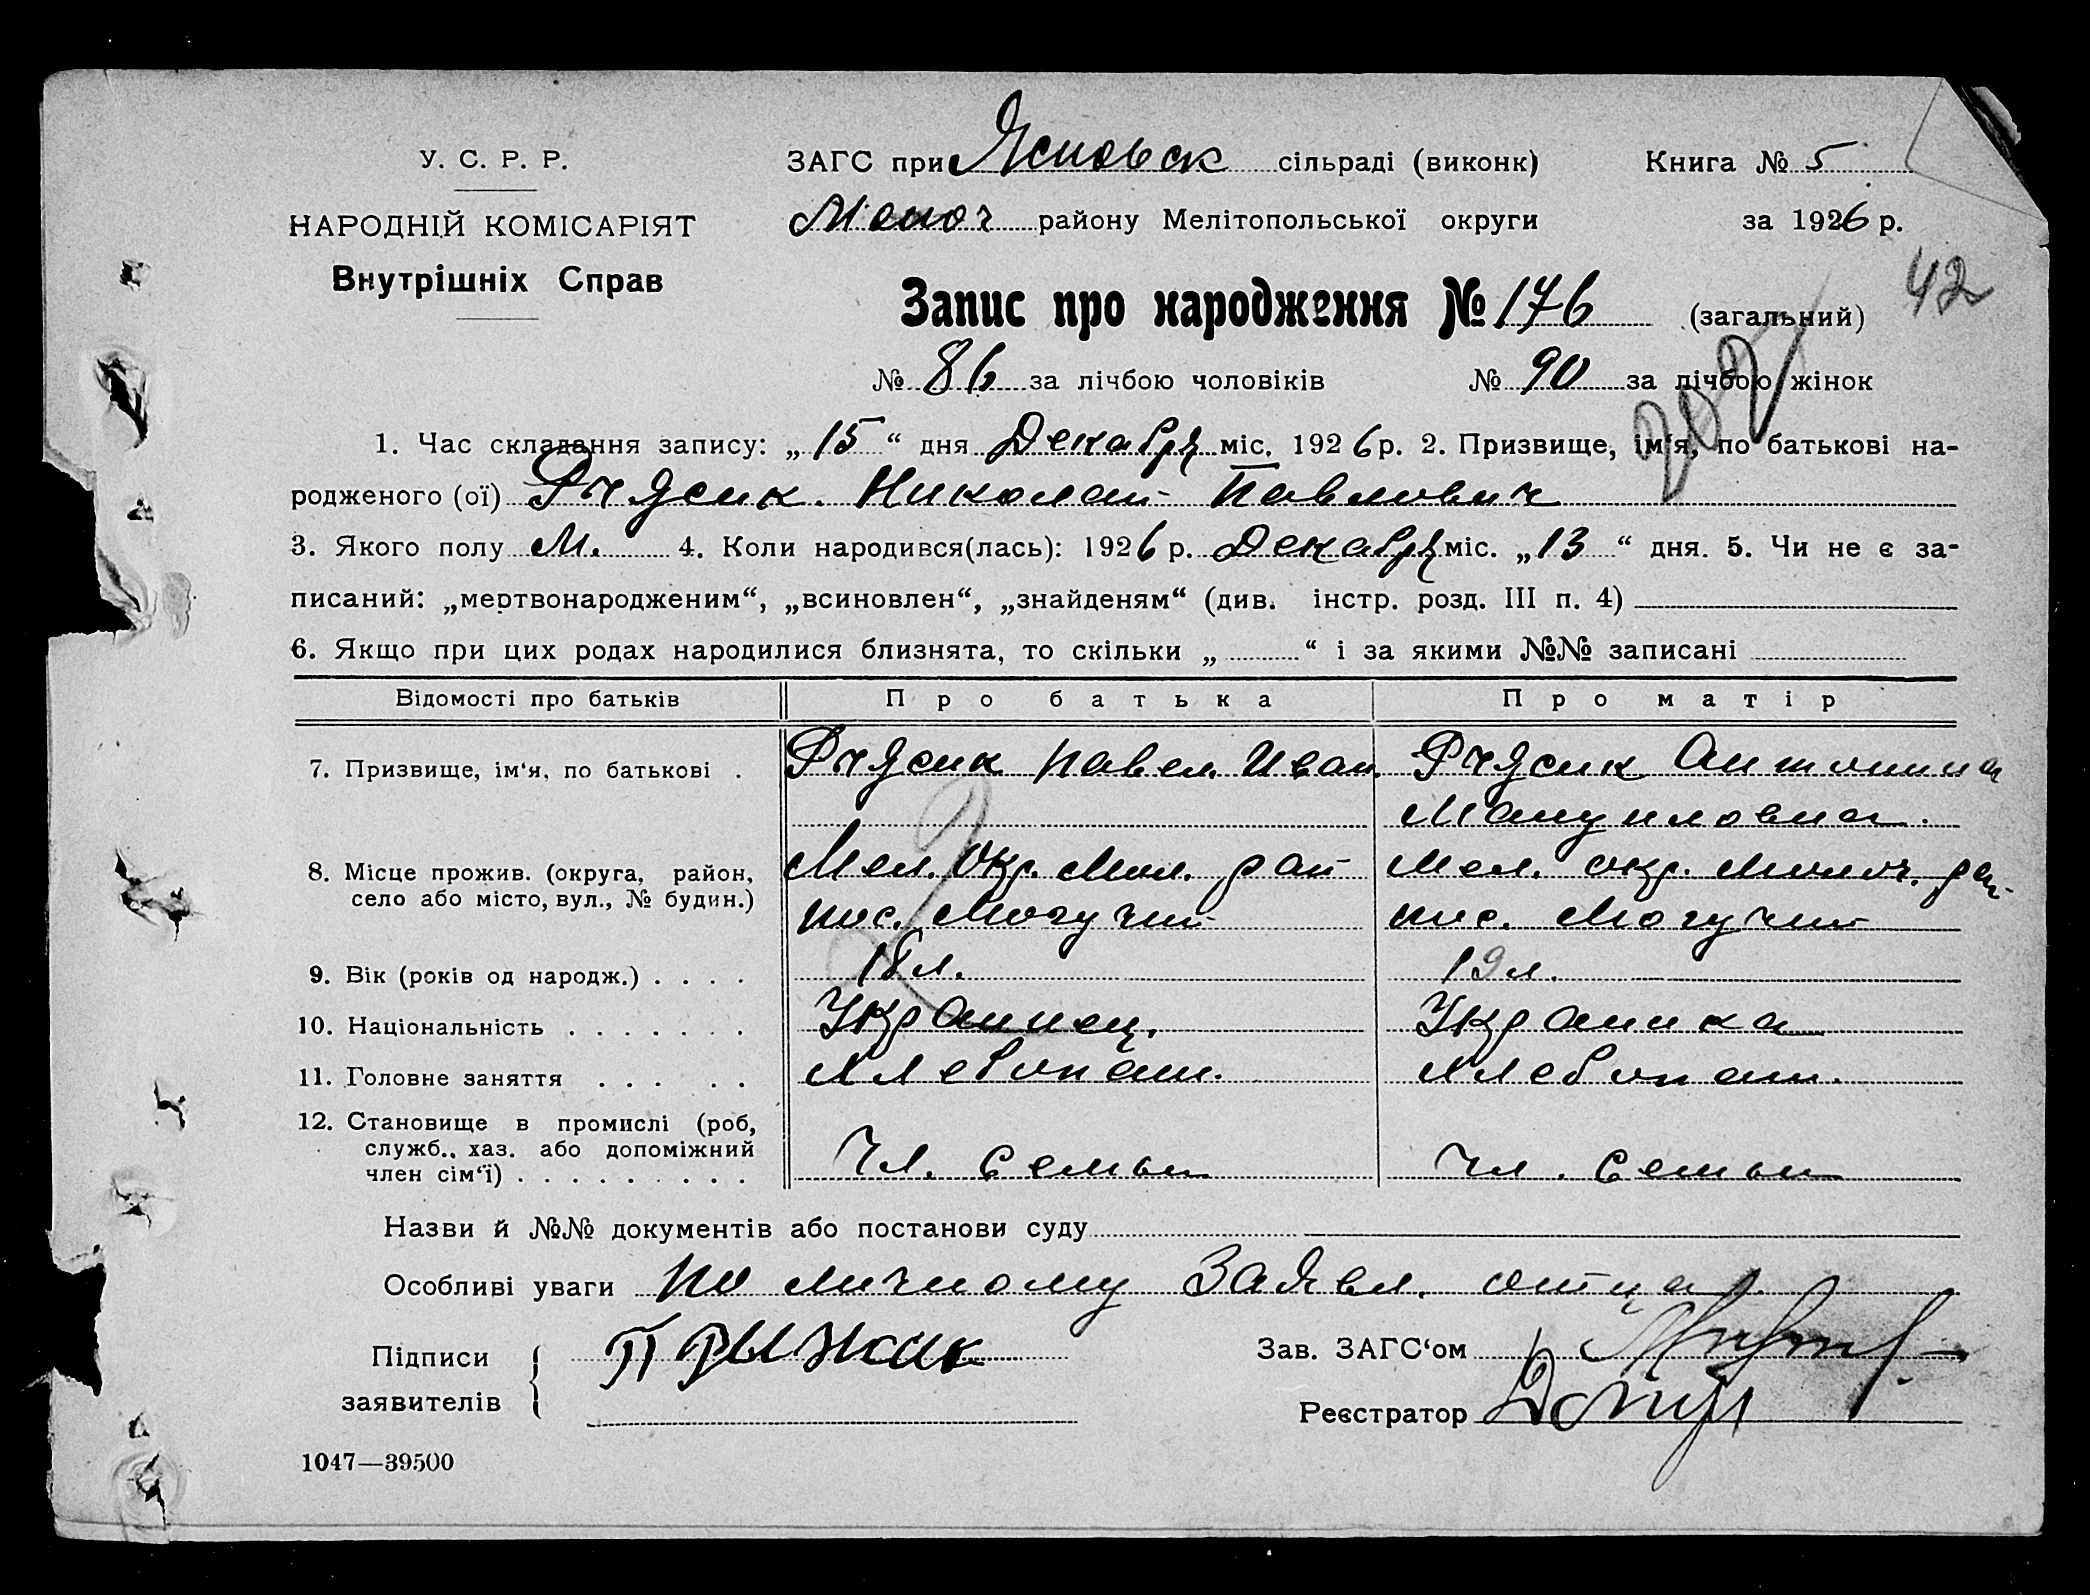 У. С. Р. Р.
НАРОДНІЙ КОМІСАРІЯТ
Внутрішніх Справ
ЗАГС при Ясновск сільраді (виконк) Книга № 5
району Мелітопольської округи за 1926 р.
42
Запис про народження № 176 (загальний)
№ 86 за лічбою чоловіків № 90 за лічбою жінок
202
1. Час складання запису: „15“ дня Декабря міс. 1926 р. 2. Призвище, ім'я, по батькові на-
родженого (ої) Николай Павлович
3. Якого полу М. 4. Коли народився(лась): 1926 р. Декабря міс. „13“ дня. 5. Чи не є за-
писаний: „мертвонародженим“, „всиновлен“, „знайденям“ (див. інстр. розд. III п. 4)
6. Якщо при цих родах народилися близнята, то скільки „ “ і за якими №№ записані
Відомості про батьків Про батька Про матір
7. Призвище, ім'я, по батькові . Павел Иван. Антонина
Мануиловна.
8. Місце прожив. (округа, район, Мел. окр. Мол. рай Мел. окр. Молоч. рай.
село або місто, вул., № будин.) пос. Могучий пос. Могучий
9. Вік (років од народж.) . . . . 18 л. 19 л.
10. Національність . . . . . . . Украинец. Украинка
11. Головне заняття . . . . . Хлебопаш. Хлебопаш.
12. Становище в промислі (роб,
служб., хаз. або допоміжний
член сім'ї) . . . . . . . . . Чл. семьи Чл. семьи
Назви й №№ документів або постанови суду
Особливі уваги По личному заявл. отца.
Підписи
заявителів
Зав. ЗАГС'ом
Реєстратор
1047—39500